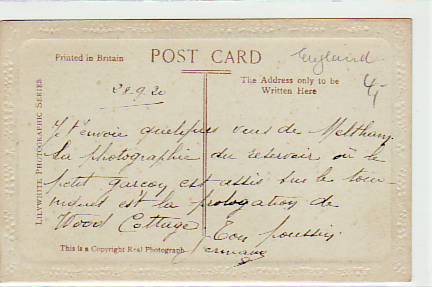 Printed in Britain
POST CARD
England
4/-
The Address only to be
Written Here
LILYWHITE PHOTOGRAPHIC SERIES
28.9.20
Je t'envoie quelques vues de Meltham.
La photographie du reservoir où le
petit garçon est assis sur le tour-
niquet est la prolongation de
Wood Cottage. Ton poussin
Germaine
This is a Copyright Real Photograph